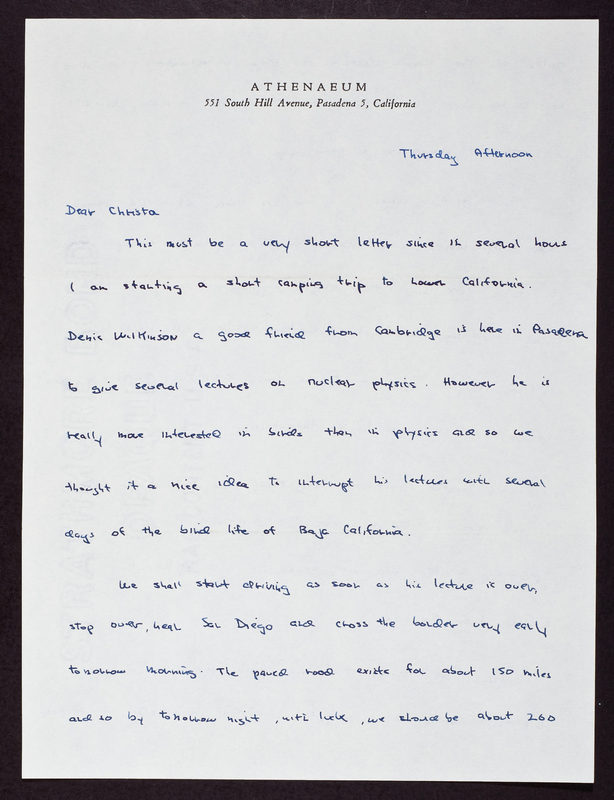 ATHENAEUM
551 South Hill Avenue, Pasadena 5, California
Thursday Afternoon
Dear Christa
This must be a very short letter since in several hours
I am starting a short camping trip to Lower California.
Denis Wilkinson a good friend from Cambridge is here in Pasadena
to give several lectures on nuclear physics. However he is
really more interested in birds than in physics and so we
thought it a nice idea to interrupt his lectures with several
days of the bird life of Baja California.
We shall start driving as soon as his lecture is over,
stop over, near San Diego and cross the border very early
tomorrow morning. The paved road exists for about 150 miles
and so by tomorrow night, with luck, we should be about 260